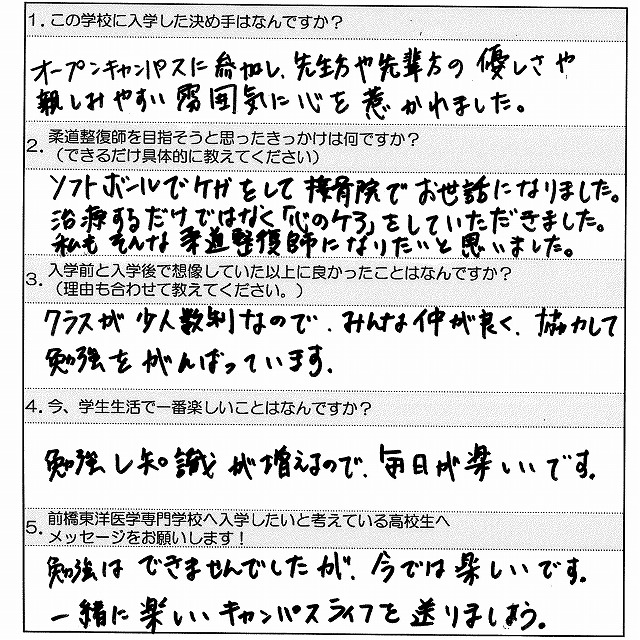 1. この学校に入学した決め手はなんですか？
オープンキャンパスに参加し、先生方や先輩方の優しさや
親しみやすい雰囲気に心を惹かれました。
2. 柔道整復師を目指そうと思ったきっかけは何ですか？
（できるだけ具体的に教えてください）
ソフトボールでケガをして接骨院でお世話になりました。
治療するだけではなく「心のケア」をしていただきました。
私もそんな柔道整復師になりたいと思いました。
3. 入学前と入学後で想像していた以上に良かったことはなんですか？
（理由も合わせて教えてください。）
クラスが少人数制なので、みんな仲が良く、協力して
勉強をがんばっています。
4. 今、学生生活で一番楽しいことはなんですか？
勉強し知識が増えるので、毎日が楽しいです。
5. 前橋東洋医学専門学校へ入学したいと考えている高校生へ
メッセージをお願いします！
勉強はできませんでしたが、今では楽しいです。
一緒に楽しいキャンパスライフを送りましょう。